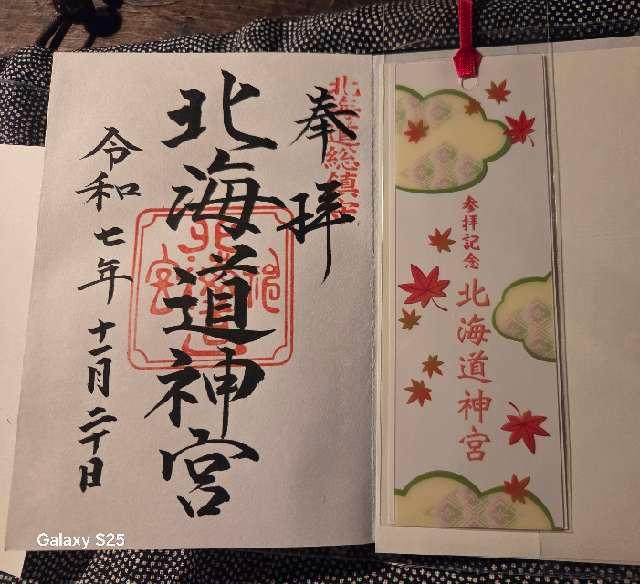 奉拝
北海道総鎮守
北海道神宮
令和七年十一月二十日
参拝記念
北海道神宮
Galaxy S25